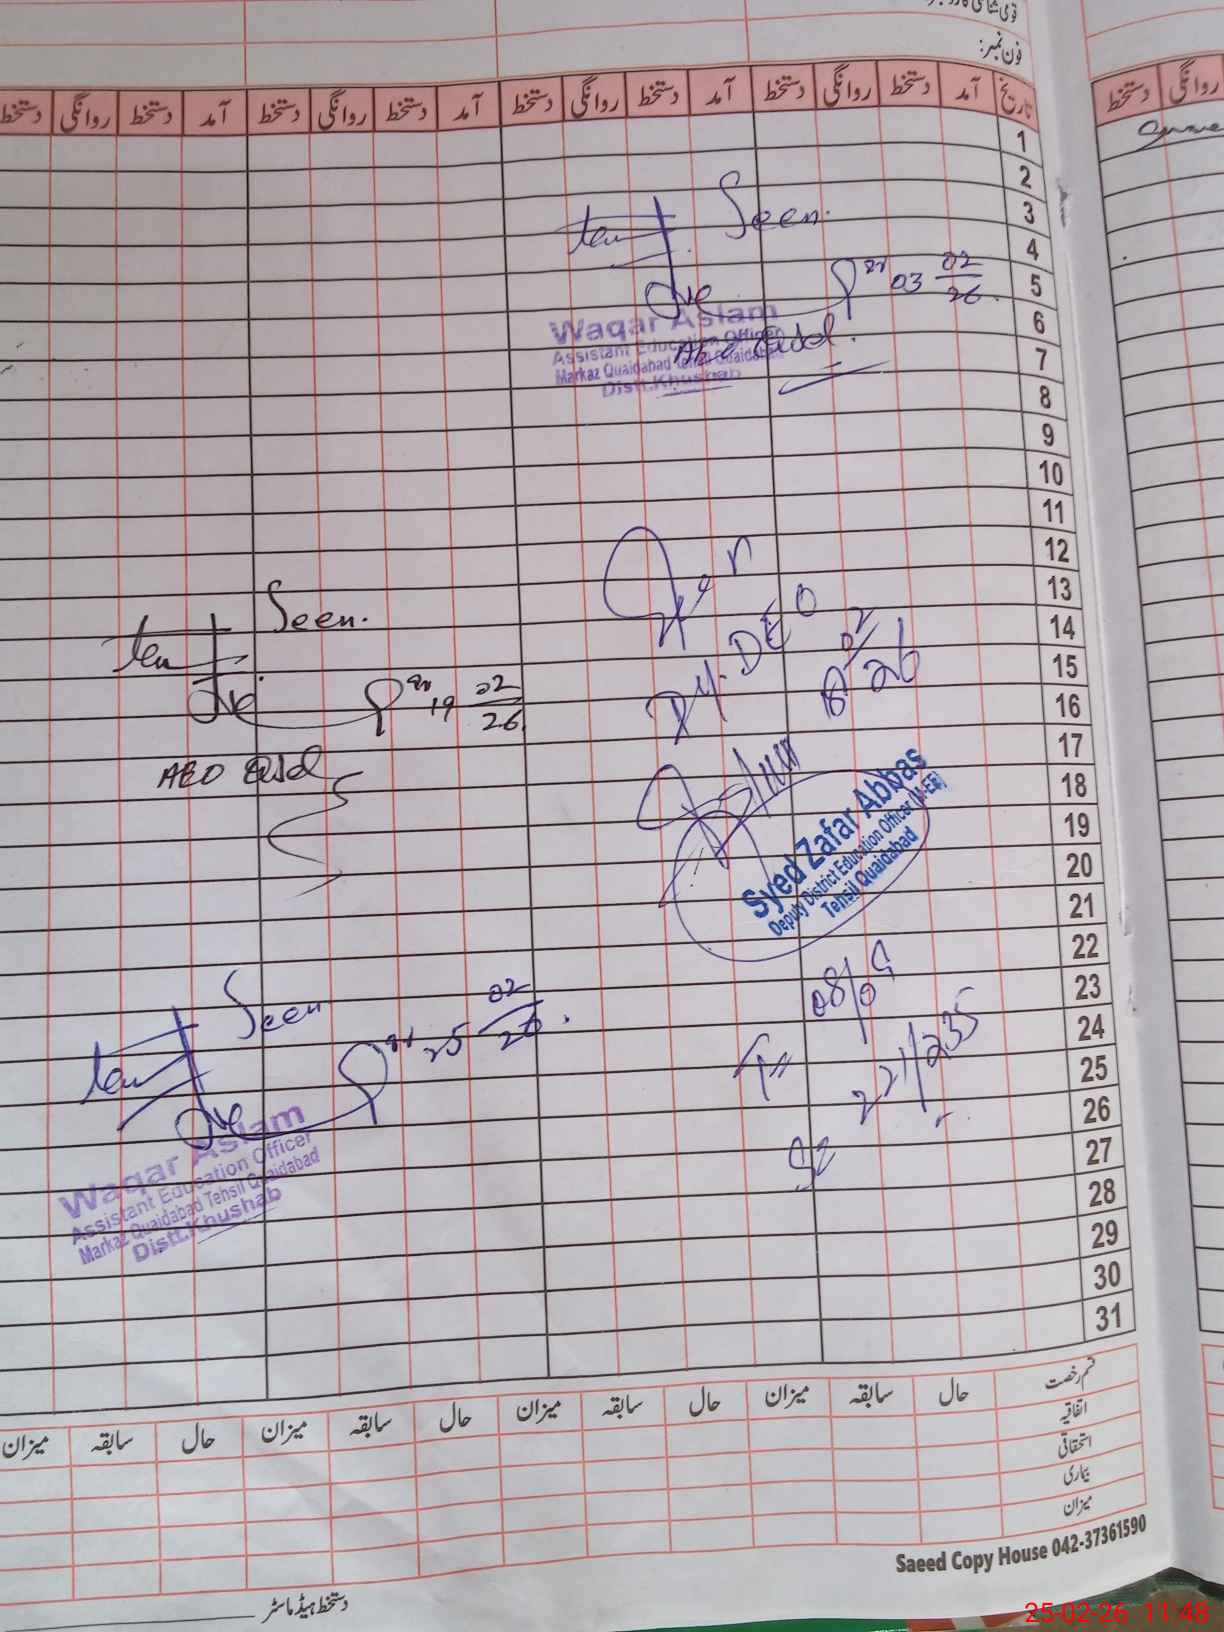 فون نمبر:
تاریخ آمد دستخط روانگی دستخط آمد دستخط روانگی دستخط آمد دستخط روانگی دستخط آمد دستخط روانگی دستخط
روانگی دستخط
1
2
3
4
5
6
7
8
9
10
11
12
13
14
15
16
17
18
19
20
21
22
23
24
25
26
27
28
29
30
31
Seen.
03 02/26
Waqar Aslam
Assistant Education Officer
Markaz Quaidabad Tehsil Quaidabad
Distt.Khushab
Dy. DEO
Syed Zafar Abbas
Deputy District Education Officer (M-EE)
Tensil Quaidabad
08/09
221/235
Seen.
19 02/26
AEO Qsd
Seen
25 02/26.
Waqar Aslam
Assistant Education Officer
Markaz Quaidabad Tensil Quaidabad
Distt.Khushab
قسم رخصت حال سابقہ میزان حال سابقہ میزان حال سابقہ میزان حال سابقہ میزان
اتفاقیہ
استحقاقی
بیماری
میزان
Saeed Copy House 042-37361590
دستخط ہیڈ ماسٹر
25-02-26 11:48